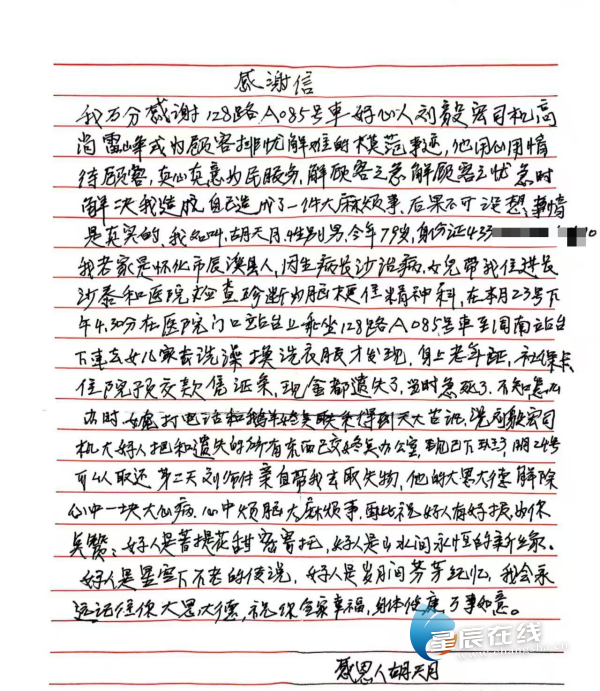 感谢信
我万分感谢128路A085号车好心人刘毅宏司机高
尚雷峰式为顾客排忧解难的模范事迹,他用心用情
待顾客,真心真意为民服务,解顾客之急解顾客之忧急时
解决我造成自己造成了一件大麻烦事,后果不可设想,事情
是真实的,我叫胡天月,性别男,今年79岁,身份证433
我老家是怀化市辰溪县人,因生病长沙治病,女儿带我住进长
沙泰和医院检查珍断为脑梗住精神科,在本月23号下
午4.30分在医院门口站台上乘坐128路A085号车至圭南站台
下车去女儿家去洗澡换洗衣服才发现,身上老年证,社保卡
住院预交款信证条,现金都遗失了,当时急死了,不知怎么
办时,打电话得到答说,刘毅宏司
机大好人把和遗失的所有东西已交办公室,现已下班了,明24号
可以取还,第二天刘师付亲自带我去取失物,他的大恩大德解除
心中一块大心病,心中烦脑大麻烦事,再此祝好人有好报,为你
点赞:好人是菩提花甜蜜寄托,好人是山水间永恒的新缘。
好人是星空下不老的传说,好人是岁月间芬芳纪忆,我会永
远记住你大恩大德,祝你全家幸福,身体健康,万事如意。
感恩人胡天月
星辰在线